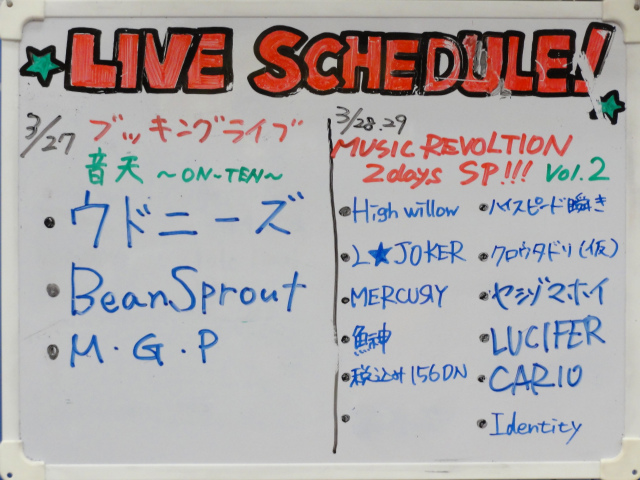 LIVE SCHEDULE!
3/27 ブッキングライブ
音天 ～ON-TEN～
・ウドニーズ
・BeanSprout
・M・G・P
3/28.29
MUSIC REVOLTION
2days SP!!! Vol.2
・High willow
・L★JOKER
・MERCURY
・鯄神
・税込み156DN
・
・ハイスピード瞬き
・クロウタドリ(仮)
・ヤシヅマホイ
・LUCIFER
・CARIO
・Identity